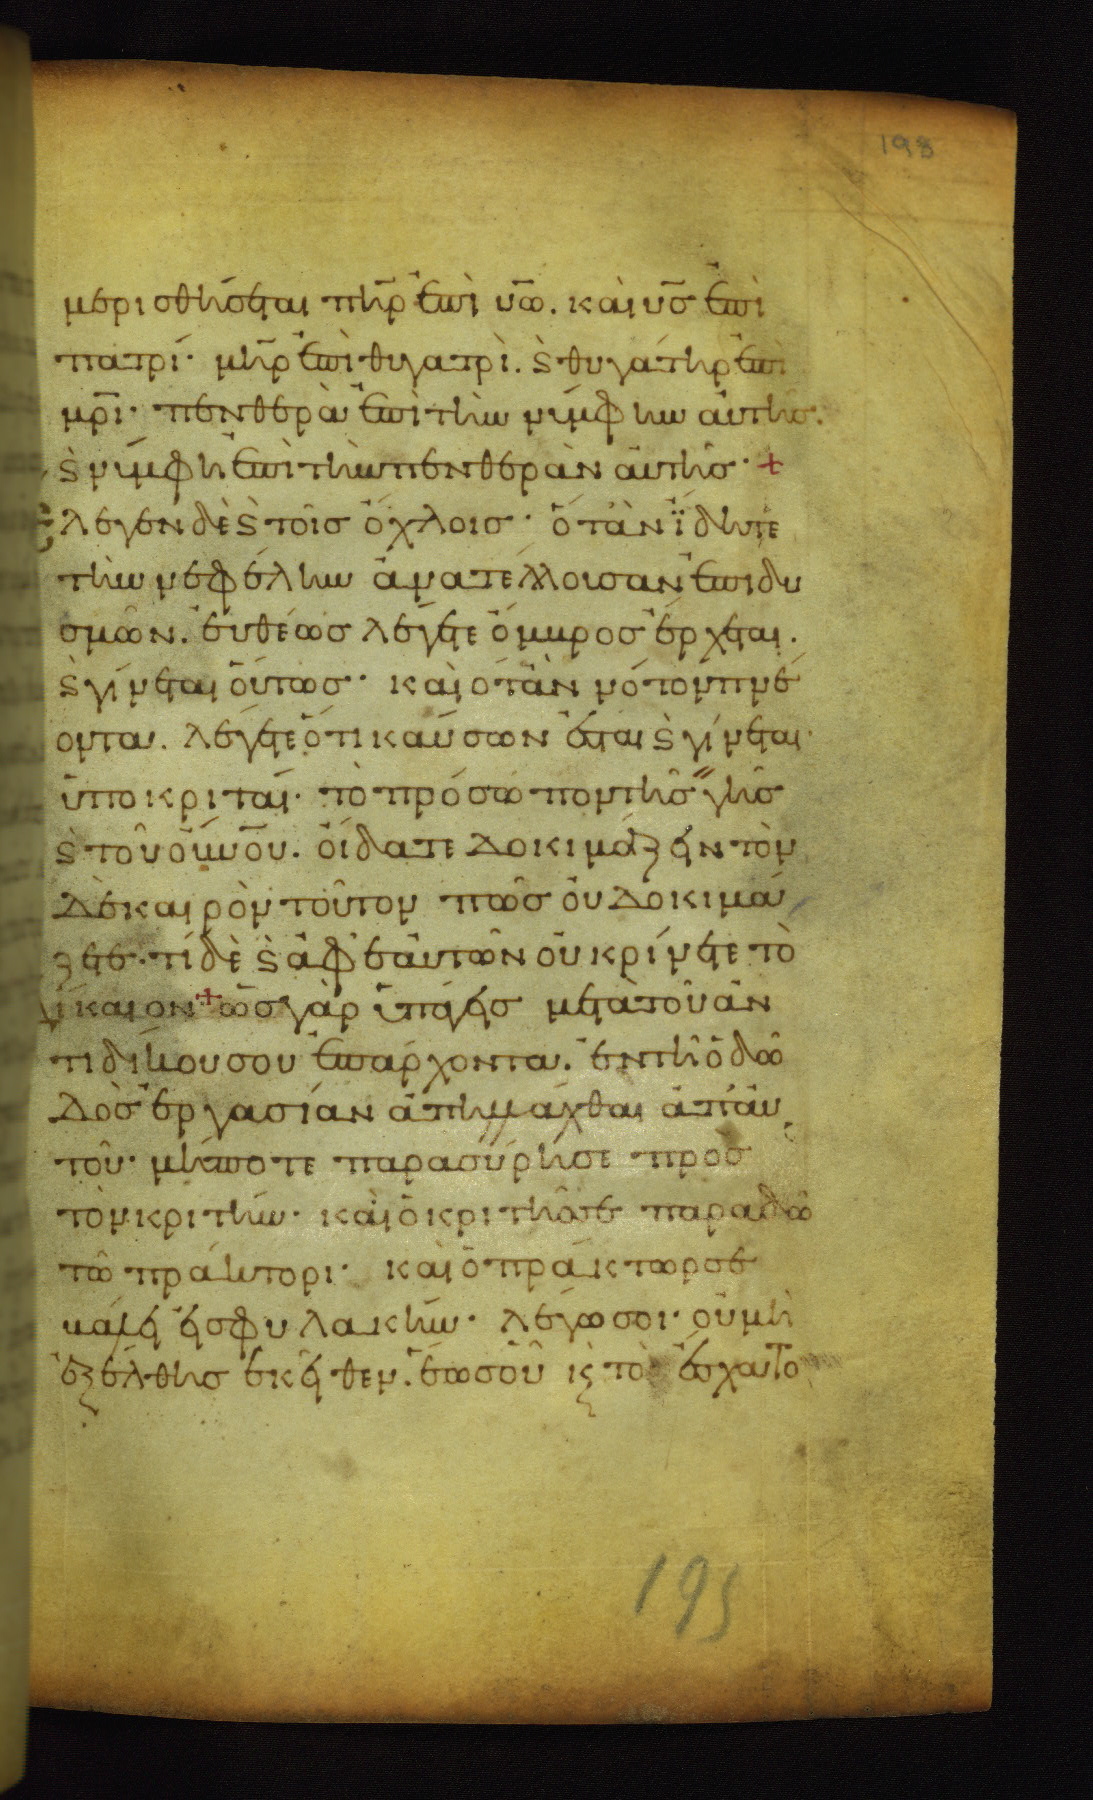 198
μερισθήσεται πη̅ρ ἐπὶ υ̅ω. καὶ υ̅σ ἐπὶ
πατρί· μη̅ρ ἐπὶ θυγατρὶ. ϗ̀ θυγάτηρ ἐπὶ
μρ̅ι· πενθερὰ ἐπὶ τὴν νύμφην αὐτῆσ.
ϗ̀ νύμφη ἐπὶ τὴν πενθερὰν αὐτῆσ· +
Ἔλεγεν δὲ ϗ̀ τοῖσ ὄχλοισ· ὅτὰν ἴ̈δητε
τὴν νεφέλην ἀνατέλλουσαν ἐπι δυ
σμῶν. εὐθέωσ λέγετε ὄμβροσ ἔρχεται.
ϗ̀ γίνεται οὕτωσ· καὶ ὁτὰν νότον πνέ
οντα. λέγετε ὅτι καύσων ἔσται ϗ̀ γίνεται·
ὑποκριταί· τὸ πρόσωπον τῆσ γῆσ
ϗ̀ τοῦ οὐ̅νο̅ῦ. οἴδατε δοκιμάζειν τὸν
δὲ καιρὸν τοῦτον πῶσ οὐ δοκιμά
ζετε· τί δὲ ϗ̀ ἀφ ἑαυτῶν οὐ κρίνετε τὸ
δίκαιον + ὡσ γὰρ ὑπάγεισ μετὰ τοῦ ἀν
τιδίκου σου ἐπ ἄρχοντα. ἐν τῆ ὁδῶ
δὸσ ἐργασίαν ἀπηλλάχθαι ἀπ' αὐ
τοῦ· μήποτε παρασύρησε πρὸσ
τὸν κριτήν· καὶ ὁ κριτῆσ σε παραδῶ
τῶ πράκτορι· καὶ ὁ πράκτωρ σε
βάλη εἰσ φυλακήν· λέγω σοι· οὐ μὴ
ἐξέλθησ ἐκεῖθεν. ἕωσ οὗ κς̀ τὸ ἔσχατο
195